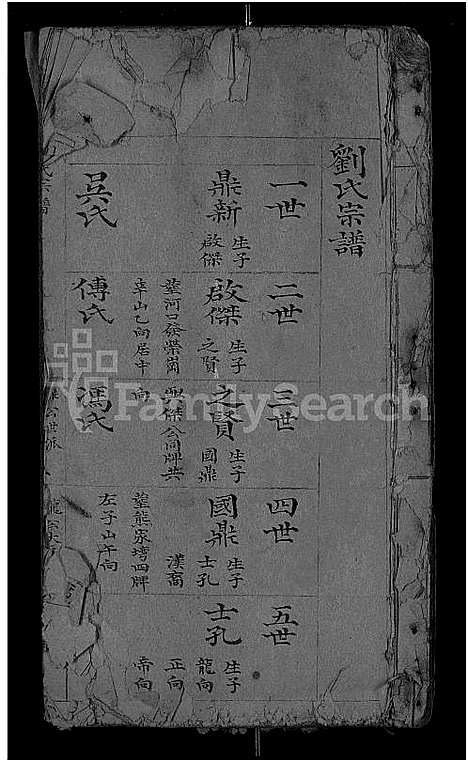 劉氏宗譜
一世
鼎新
生子
啟傑
吳氏
二世
啟傑
生子
之賢
葬河口發榮崗
辛山乙向居中
傅氏
三世
之賢
生子
國鼎
啟傑公同牌共
向
馮氏
四世
國鼎
生子
士孔
漢裔
葬熊家塆四牌
左子山午向
五世
士孔
生子
龍向
正向
帝向
氏宗譜
FamilySearch